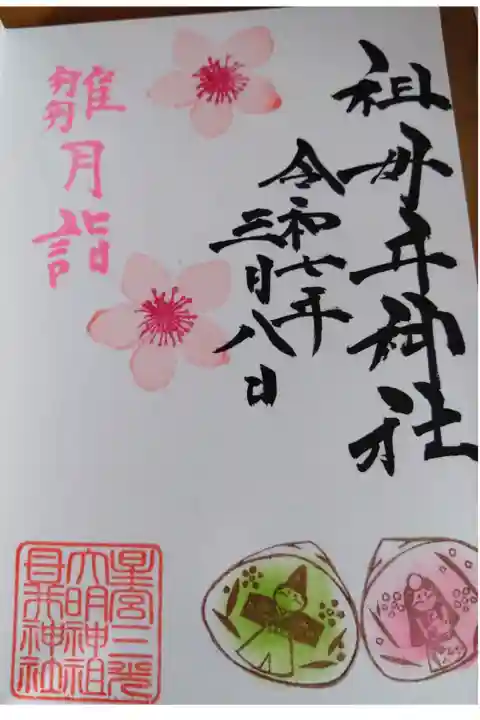 祖母井神社
令和七年
三月八日
雛月詣
星宮
大明神祖
母井神社